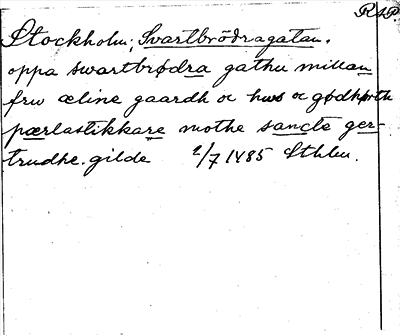 RAP.
Stockholm; Svartbrödragatan.
oppa swartbrødra gathu millan
frw æline gaardh oc hws oc gødhkth
pærlastikkare mothe sancte ger-
trudhe. gilde 2/7 1485 Sthlm.